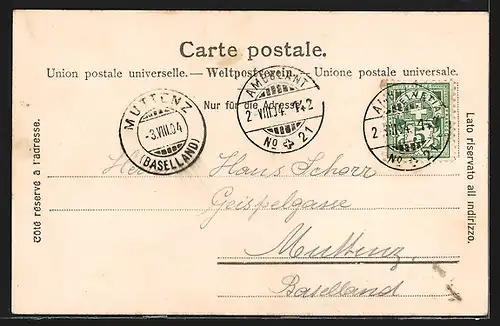 Carte postale.
Union postale universelle. — Weltpostverein — Unione postale universale.
Nur für die Adresse
Côté réservé à l'adresse.
Lato riservato all indirizzo.
MUTTENZ
-3.VIII.04
(BASELLAND)
AMBULANT
2-VIII.04 742
No 21
AMBULANT
2-VIII.04 742
No 21
HELVETIA
Herrn Hans Schorr
Geispelgasse
Muttenz
Baselland